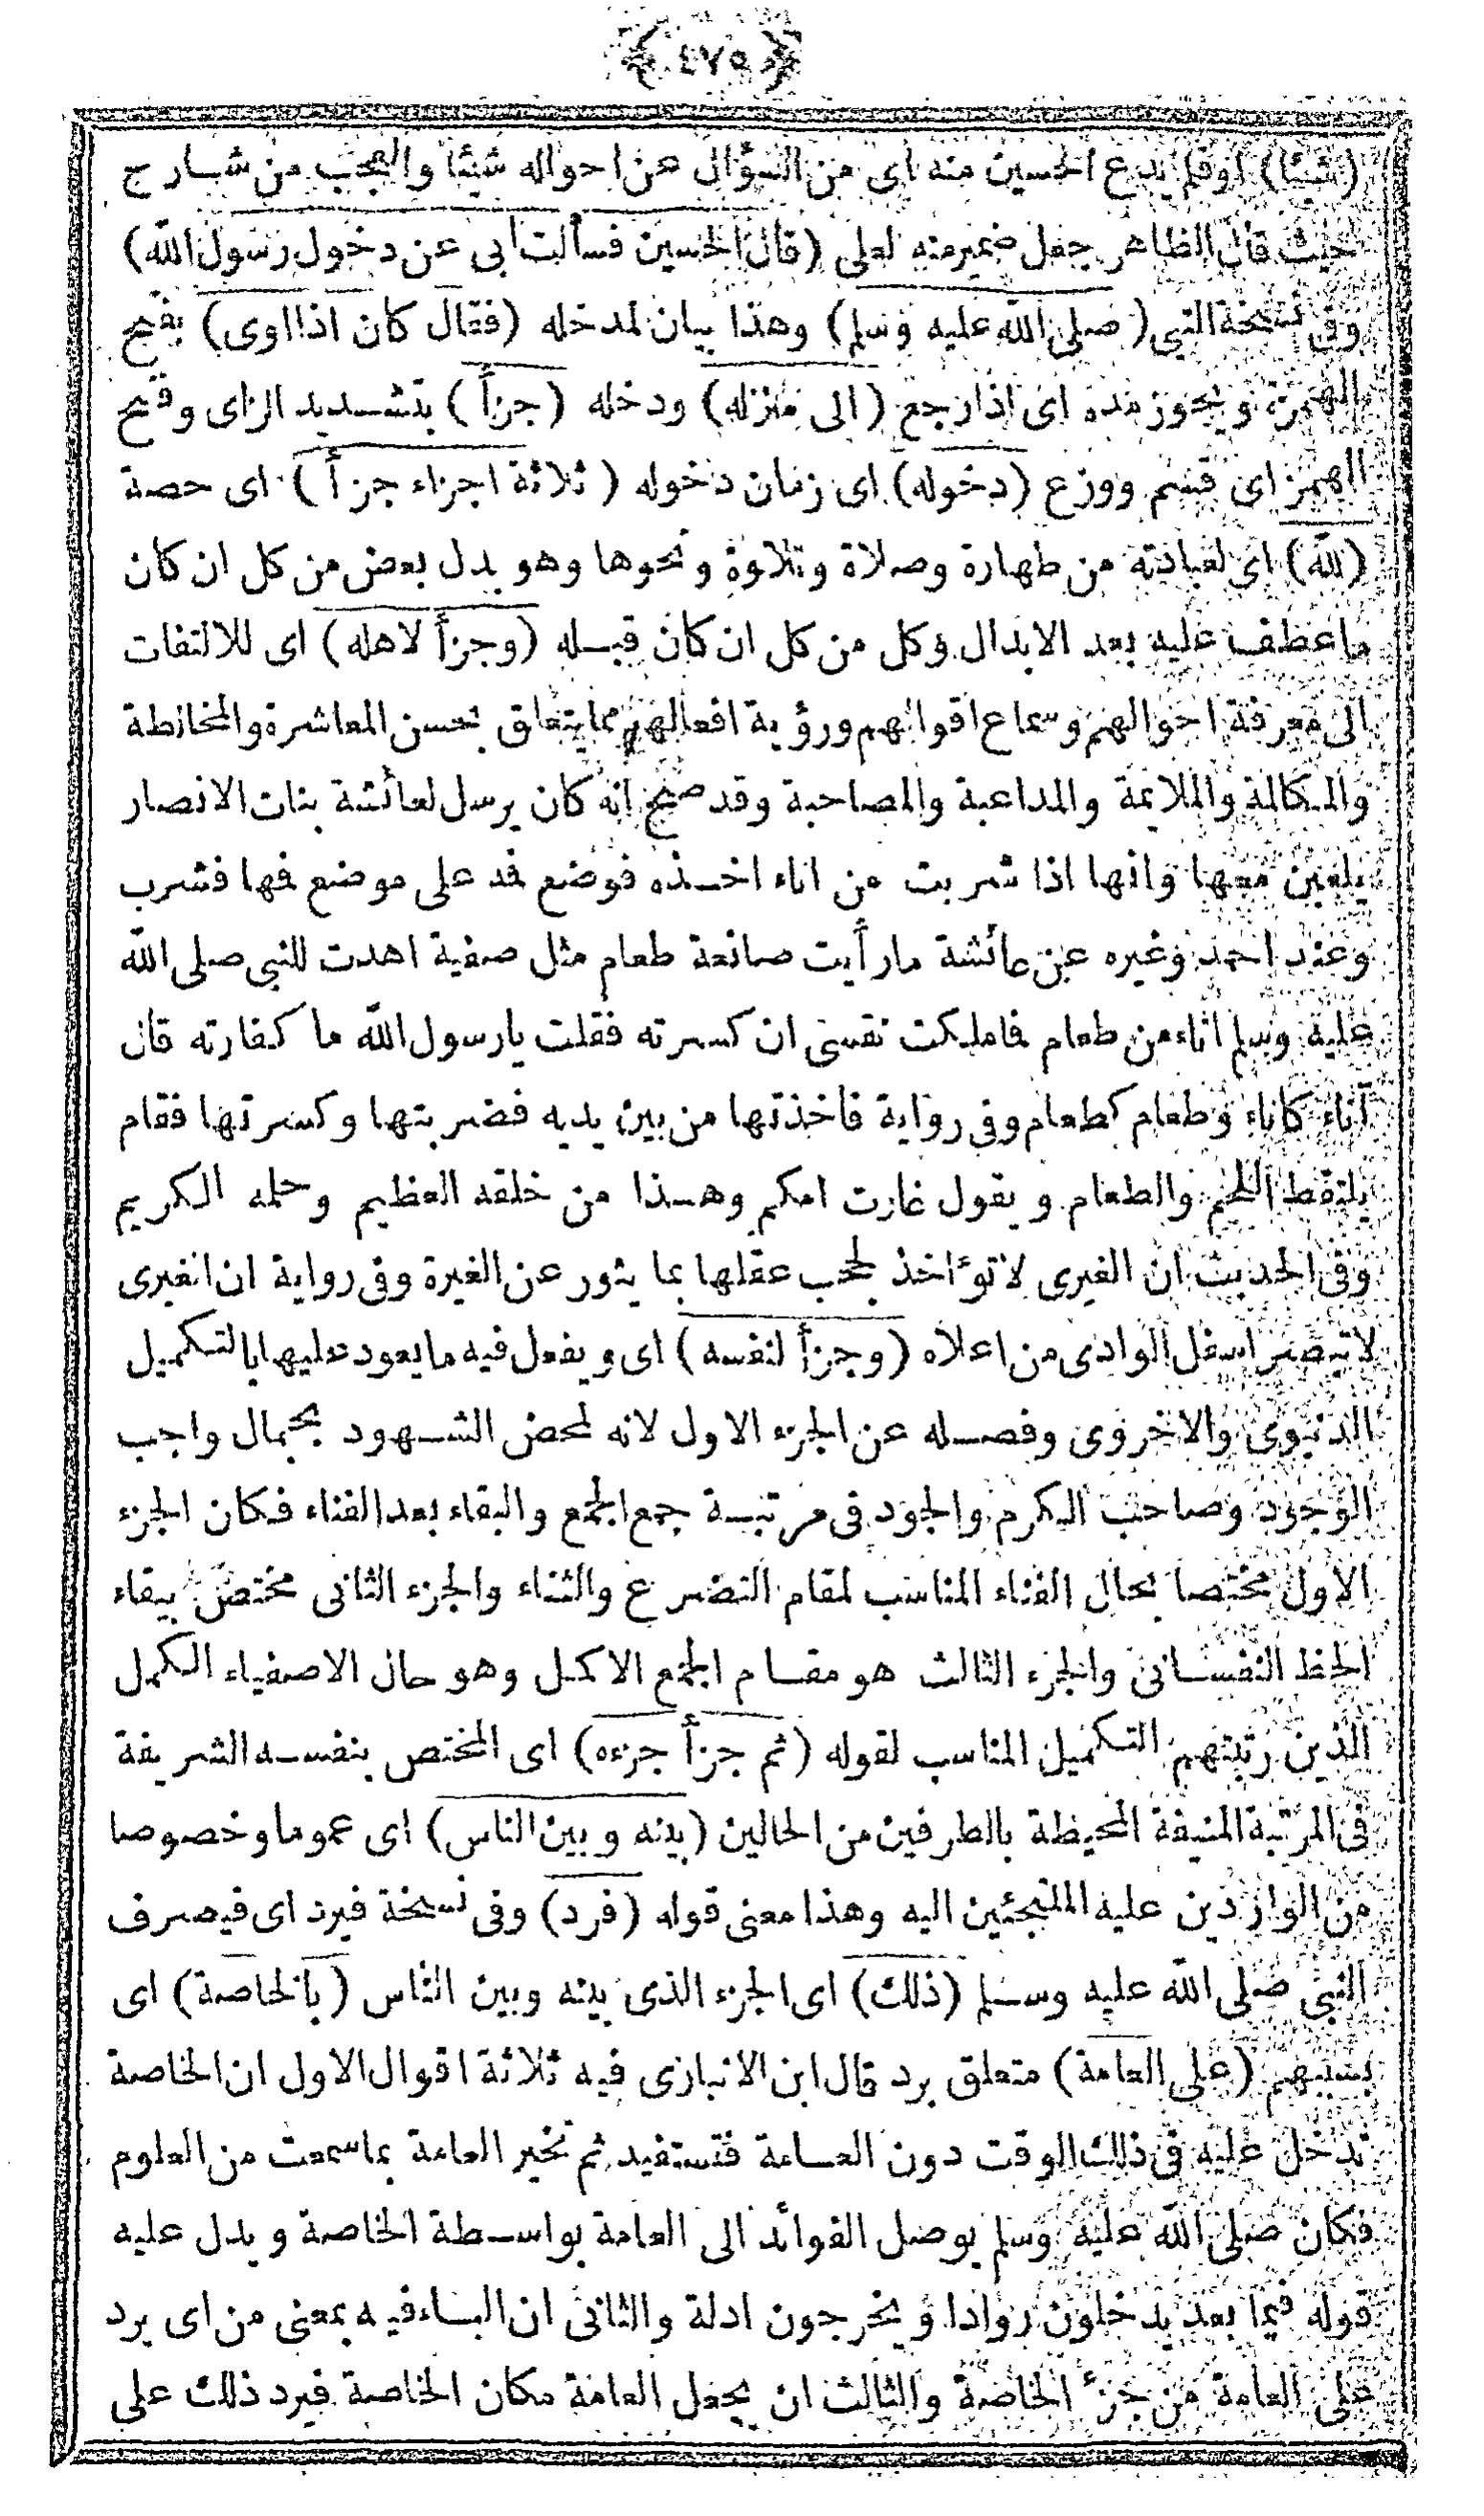 ﴿ ٤٧٥ ﴾
(شيئا) اوفلم يدع الحسين منه اى من السؤال عن احواله شيئا والعجب من شارح
حيث قال الظاهر جعل ضمير منه لعلى (قال الحسين فسألت ابى عن دخول رسول الله)
وفى نسخة النبى (صلى الله عليه وسلم) وهذا بيان لمدخله (فقال كان اذا اوى) بفتح
الهمزة ويجوز مده اى اذا رجع (الى منزله) ودخله (جزأ) بتشديد الزاى وفتح
الهمز اى قسم ووزع (دخوله) اى زمان دخوله (ثلاثة اجزاء جزأ) اى حصة
(لله) اى لعبادته من طهارة وصلاة وتلاوة ونحوها وهو بدل بعض من كل ان كان
ما عطف عليه بعد الابدال وكل من كل ان كان قبله (وجزأ لاهله) اى للالتفات
الى معرفة احوالهم وسماع اقوالهم ورؤية افعالهم مما يتعلق بحسن المعاشرة والمخالطة
والمكالمة والملايمة والمداعبة والمصاحبة وقد صح انه كان يرسل لعائشة بنات الانصار
يلعبن معها وانها اذا شربت من اناء اخذه فوضع فه على موضع فها فشرب
وعند احمد وغيره عن عائشة مارأيت صانعة طعام مثل صفية اهدت للنبى صلى الله
عليه وسلم اناء من طعام فاملكت نفسى ان كسرته فقلت يارسول الله ما كفارته قال
اناء كاناء وطعام كطعام وفى رواية فاخذتها من بين يديه فضربتها وكسرتها فقام
يلتقط اللحم والطعام ويقول غارت امكم وهذا من خلقه العظيم وحلمه الكريم
وفى الحديث ان الغيرى لا تؤاخذ لحجب عقلها بما يثور عن الغيرة وفى رواية ان الغيرى
لا تبصر اسفل الوادى من اعلاه (وجزأ لنفسه) اى ويفعل فيه ما يعود عليها بالتكميل
الدنيوى والاخروى وفصله عن الجزء الاول لانه لمحض الشهود بجمال واجب
الوجود وصاحب الكرم والجود فى مرتبة جمع الجمع والبقاء بعد الفناء فكان الجزء
الاول مختصا بحال الفناء المناسب لمقام التضرع والثناء والجزء الثانى مختص ببقاء
الحظ النفسانى والجزء الثالث هو مقام الجمع الاكمل وهو حال الاصفياء الكمل
الذين رتبتهم التكميل المناسب لقوله (ثم جزأ جزءه) اى المختص بنفسه الشريفة
فى المرتبة المنيفة المحيطة بالطرفين من الحالين (بينه وبين الناس) اى عموما وخصوصا
من الواردين عليه الملتجئين اليه وهذا معنى قوله (فرد) وفى نسخة فيرد اى فيصرف
النبى صلى الله عليه وسلم (ذلك) اى الجزء الذى بينه وبين الناس (بالخاصة) اى
بسببهم (على العامة) متعلق برد قال ابن الانبارى فيه ثلاثة اقوال الاول ان الخاصة
تدخل عليه فى ذلك الوقت دون العامة فتستفيد ثم تخبر العامة بما سمعت من العلوم
فكان صلى الله عليه وسلم يوصل الفوائد الى العامة بواسطة الخاصة ويدل عليه
قوله فيما بعد يدخلون روادا ويخرجون ادلة والثانى ان الباء فيه بمعنى من اى يرد
على العامة من جزء الخاصة والثالث ان يجعل العامة مكان الخاصة فيرد ذلك على